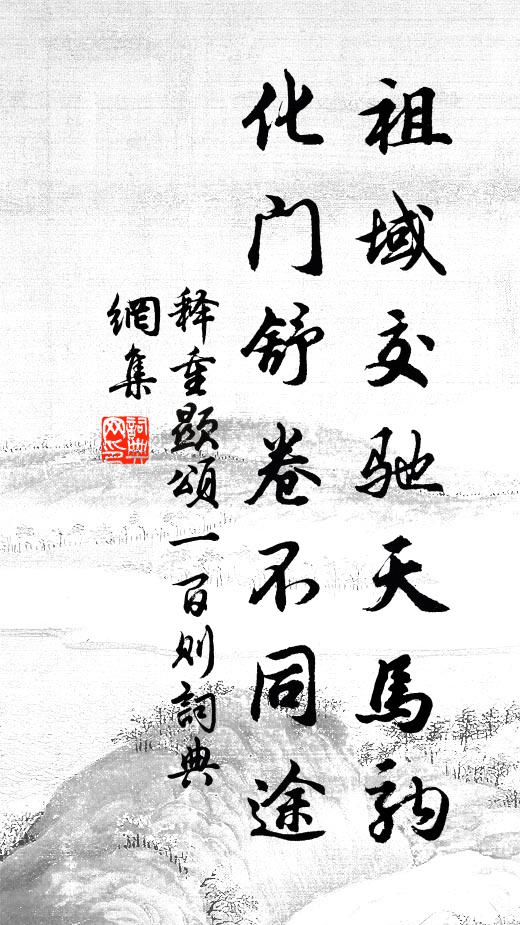 祖域交驰天馬駒
化门舒卷不同途
释重顯頌一百则詞典
網集
詞典